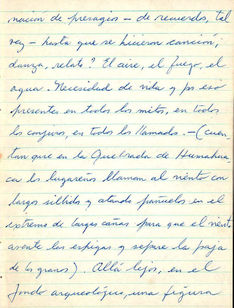 nación de presagios - de recuerdos, tal
vez - hasta que se hicieron canción,
danza, relato? El aire, el fuego, el
agua. Necesidad de vida y por eso
presentes en todos los mitos, en todos
los conjuros, en todos los llamados. - (cuen-
tan que en la Quebrada de Humahua
ca los lugareños llaman al viento con
largos silbidos y atando pañuelos en el
extremo de largas cañas para que el vient
avente las espigas y separe la paja
de los granos). Allá lejos, en el
fondo arqueológico, una figura